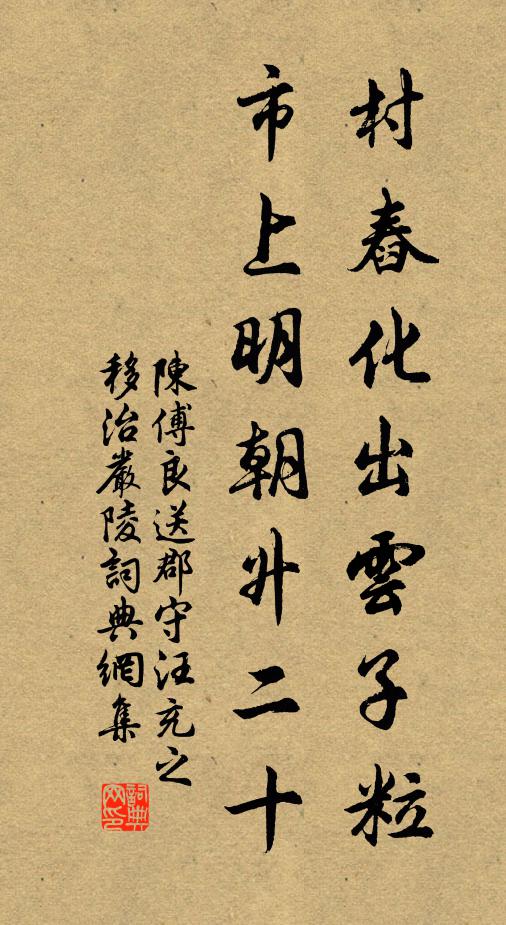 村舂化出雲子粒
市上明朝升二十
陳傅良送郡守汪充之
移治嚴陵詞典網集
詞典网印